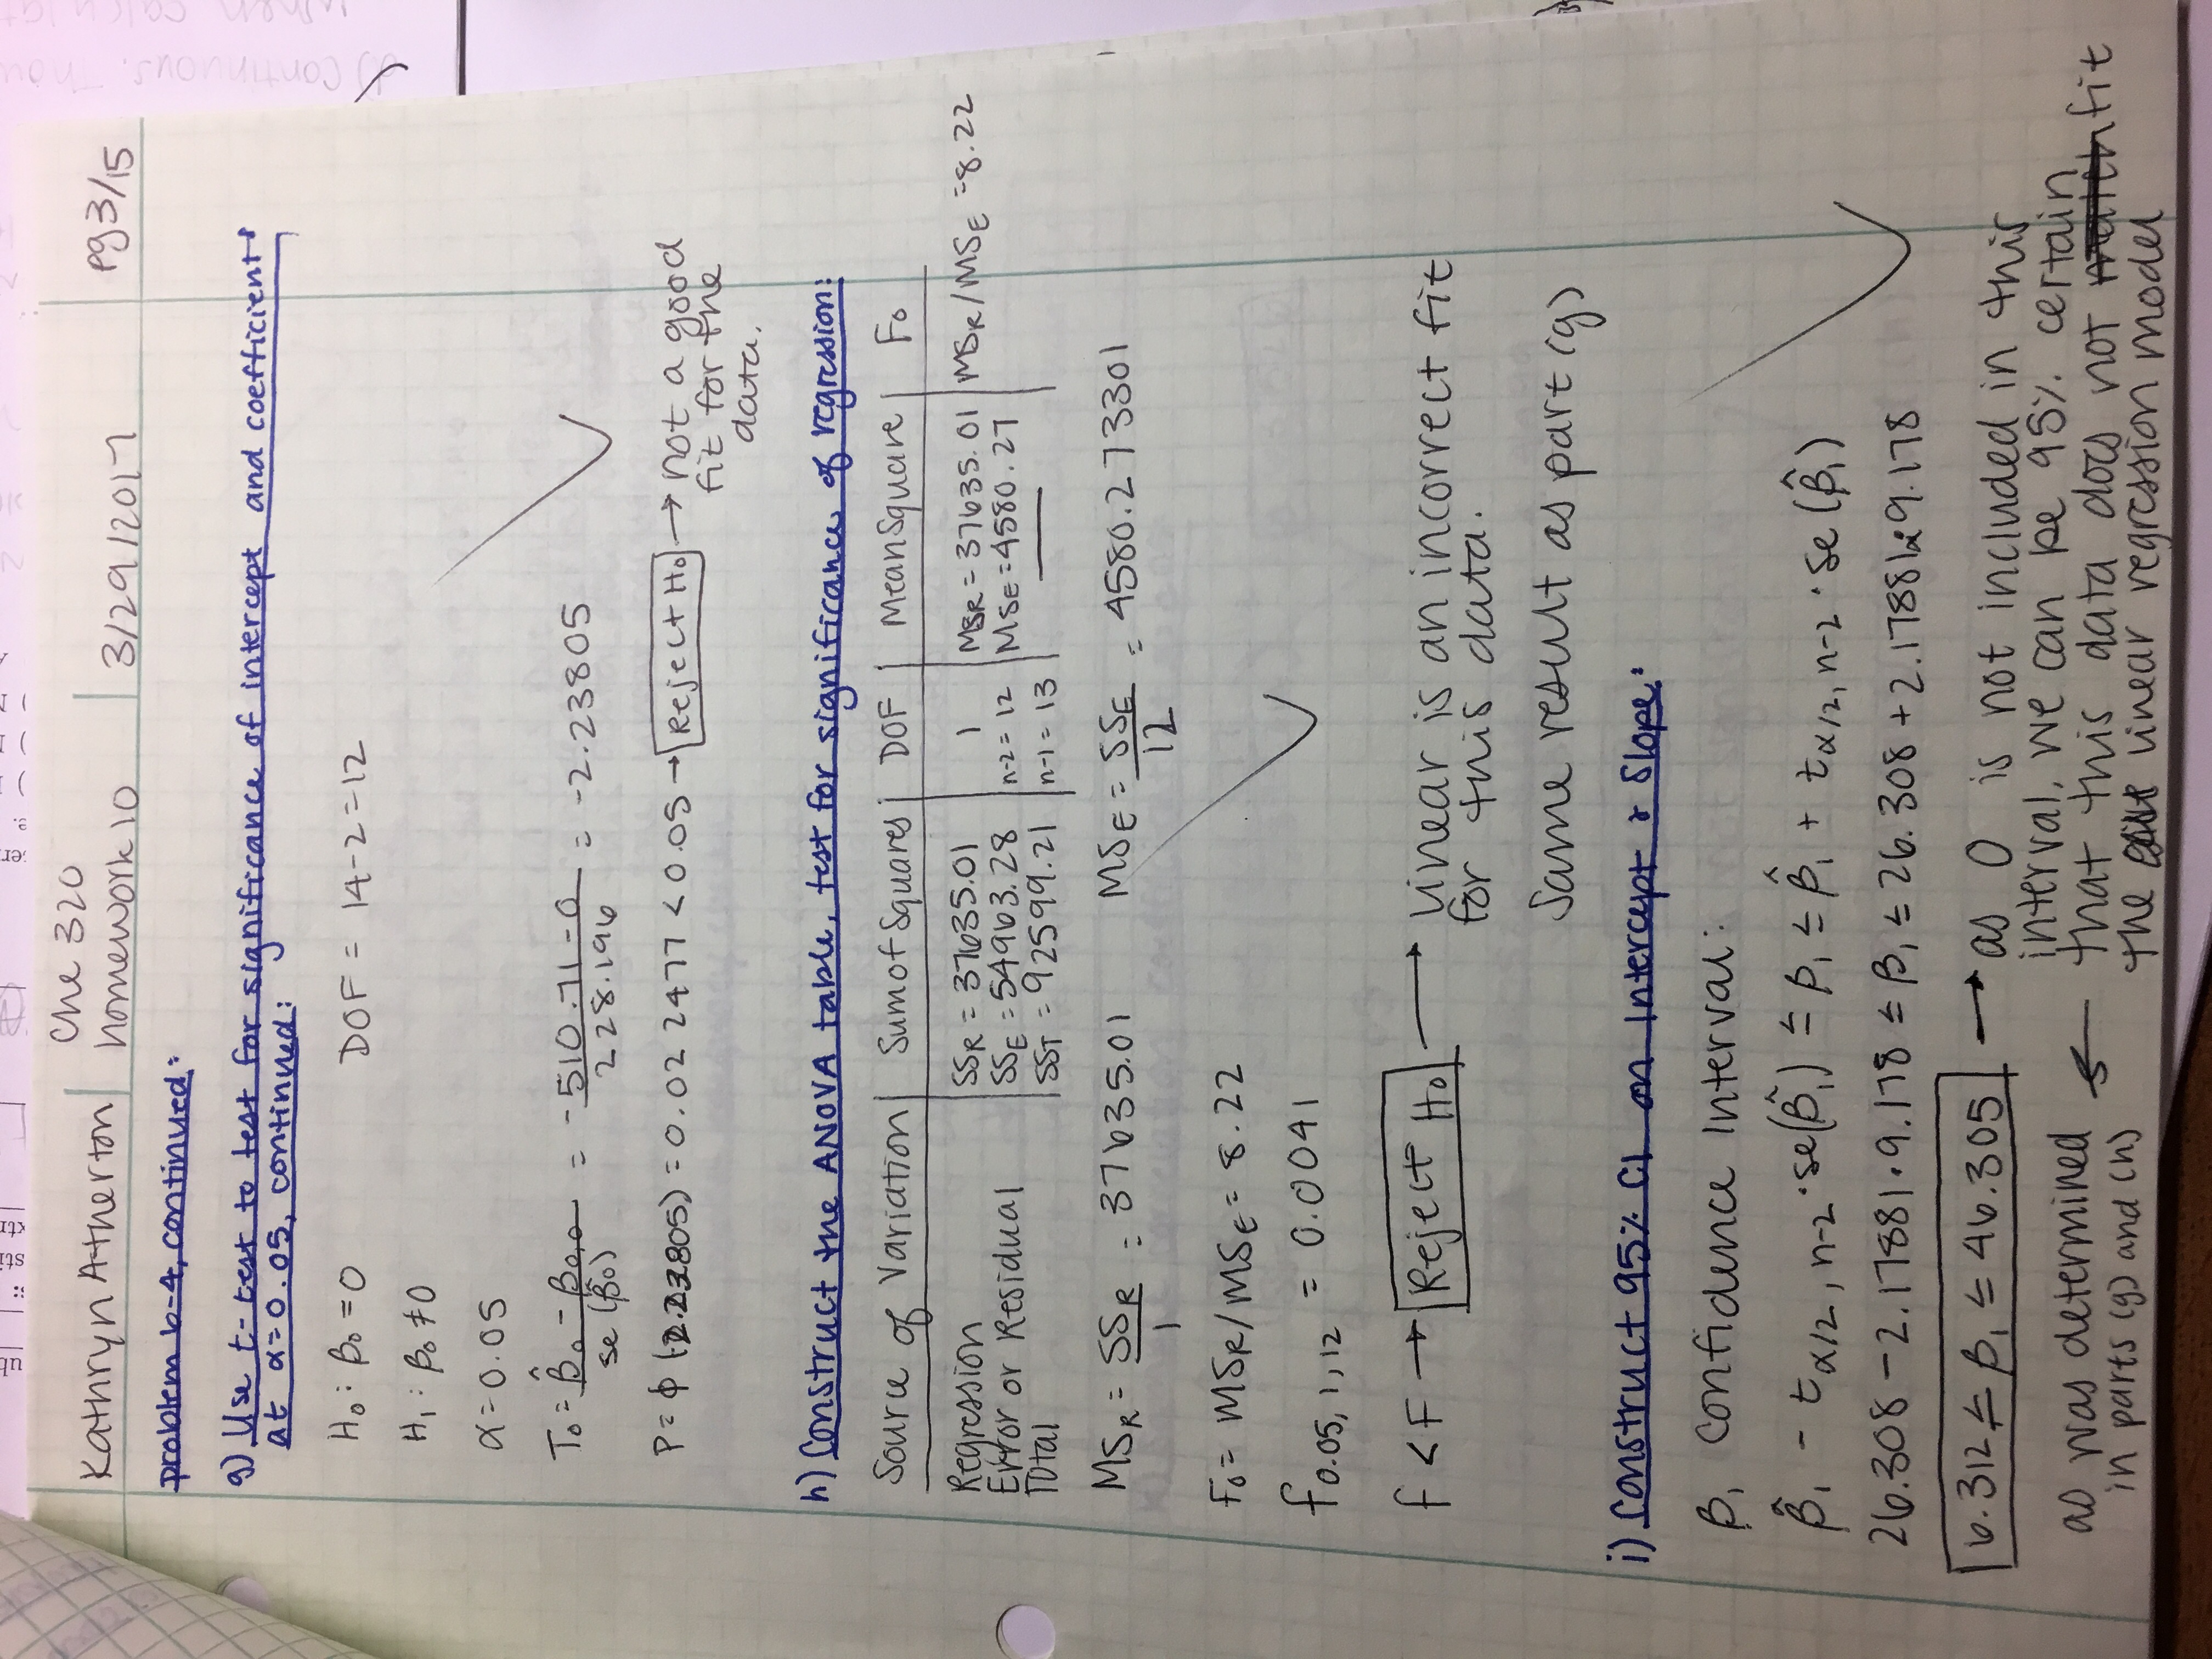 Kathryn Atherton
Che 320
homework 10
3/29/2017
pg 3/15
problem 6-4, continued:
g) Use t-test to test for significance of intercept and coefficients
at α=0.05, continued:
H₀: β₀ = 0 DOF = 14-2=12
H₁: β₀ ≠ 0
α=0.05
T₀ = (β̂₀ - β₀,₀)/(se(β̂₀)) = (-510.71-0)/(228.196) = -2.23805
P = ϕ(-2.23805) = 0.022477 < 0.05 → Reject H₀ → not a good
fit for the
data.
h) Construct the ANOVA table, test for significance of regression:
Source of Variation | Sum of Squares | DOF | Mean Square | F₀
Regression | SS_R = 37635.01 | 1 | MS_R = 37635.01 | MS_R/MS_E = 8.22
Error or Residual | SS_E = 54963.28 | n-2 = 12 | MS_E = 4580.27
Total | SS_T = 92599.21 | n-1 = 13 | —
MS_R = SS_R/1 = 37635.01 MS_E = SS_E/12 = 4580.273301
F₀ = MS_R/MS_E = 8.22
f₀.₀₅, ₁, ₁₂ = 0.0041
f < F → Reject H₀ → linear is an incorrect fit
for this data.
Same result as part (g)
i) Construct 95% CI on Intercept & Slope:
β₁ Confidence Interval:
β̂₁ - t_α/2, n-2 · se(β̂₁) ≤ β₁ ≤ β̂₁ + t_α/2, n-2 · se(β̂₁)
26.308 - 2.17881 · 9.178 ≤ β₁ ≤ 26.308 + 2.17881 · 9.178
6.312 ≤ β₁ ≤ 46.305 → as 0 is not included in this
interval, we can be 95% certain
that this data does not fit
the linear regression model
← as was determined
in parts (g) and (h)